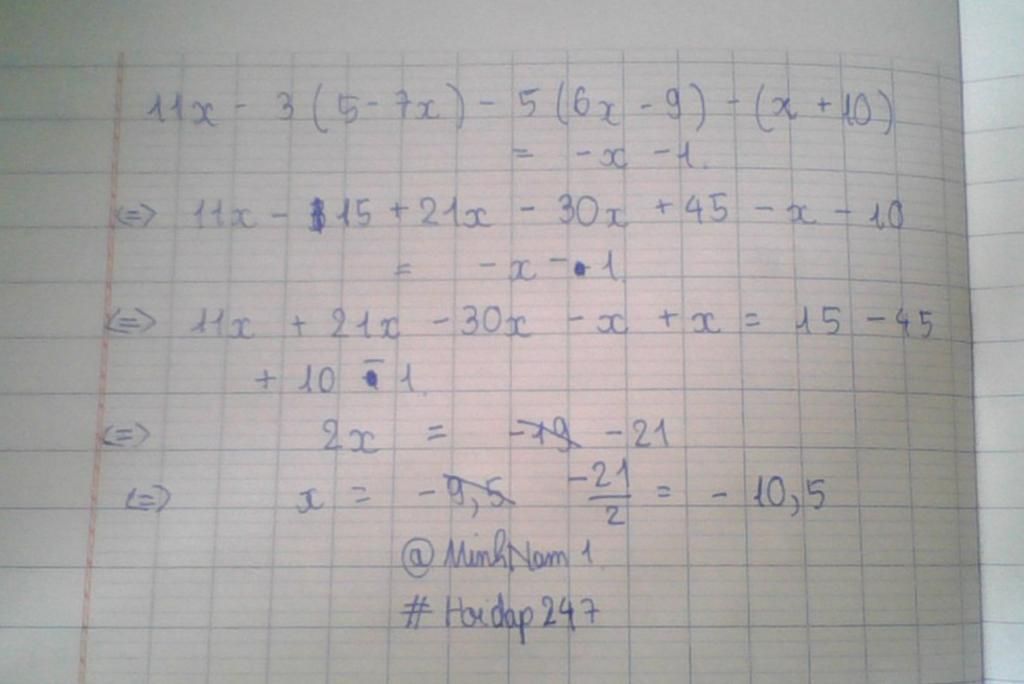 11x - 3(5-7x) - 5(6x-9) - (x+10)
= -x -1.
<=> 11x - 15 + 21x - 30x + 45 - x - 10
= -x - 1
<=> 11x + 21x - 30x - x + x = 15 - 45
+ 10 - 1.
<=> 2x = -19 -21
<=> x = -9,5 -21/2 = -10,5
@MinhNam1
#Hoidap247